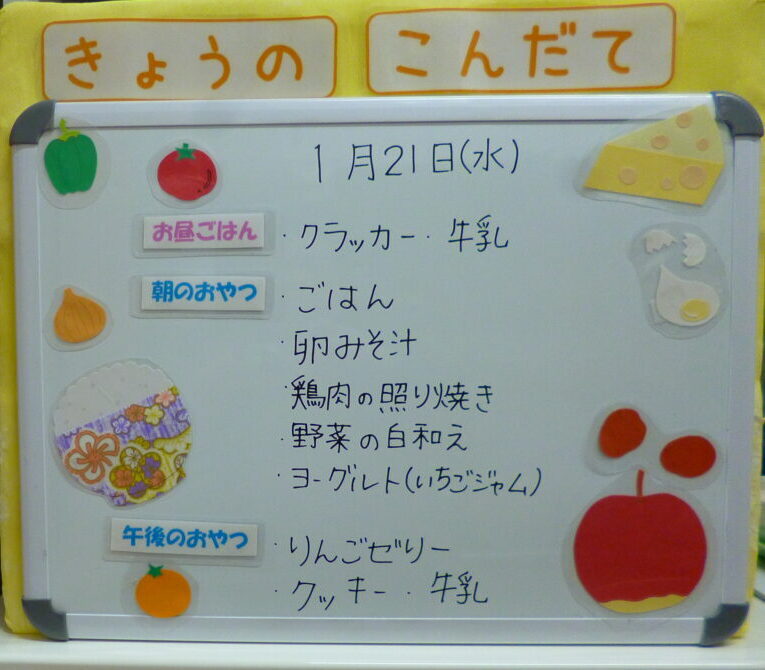 きょうの こんだて
1月21日(水)
お昼ごはん ・クラッカー・牛乳
朝のおやつ ・ごはん
・卵みそ汁
・鶏肉の照り焼き
・野菜の白和え
・ヨーグルト(いちごジャム)
午後のおやつ ・りんごゼリー
・クッキー・牛乳